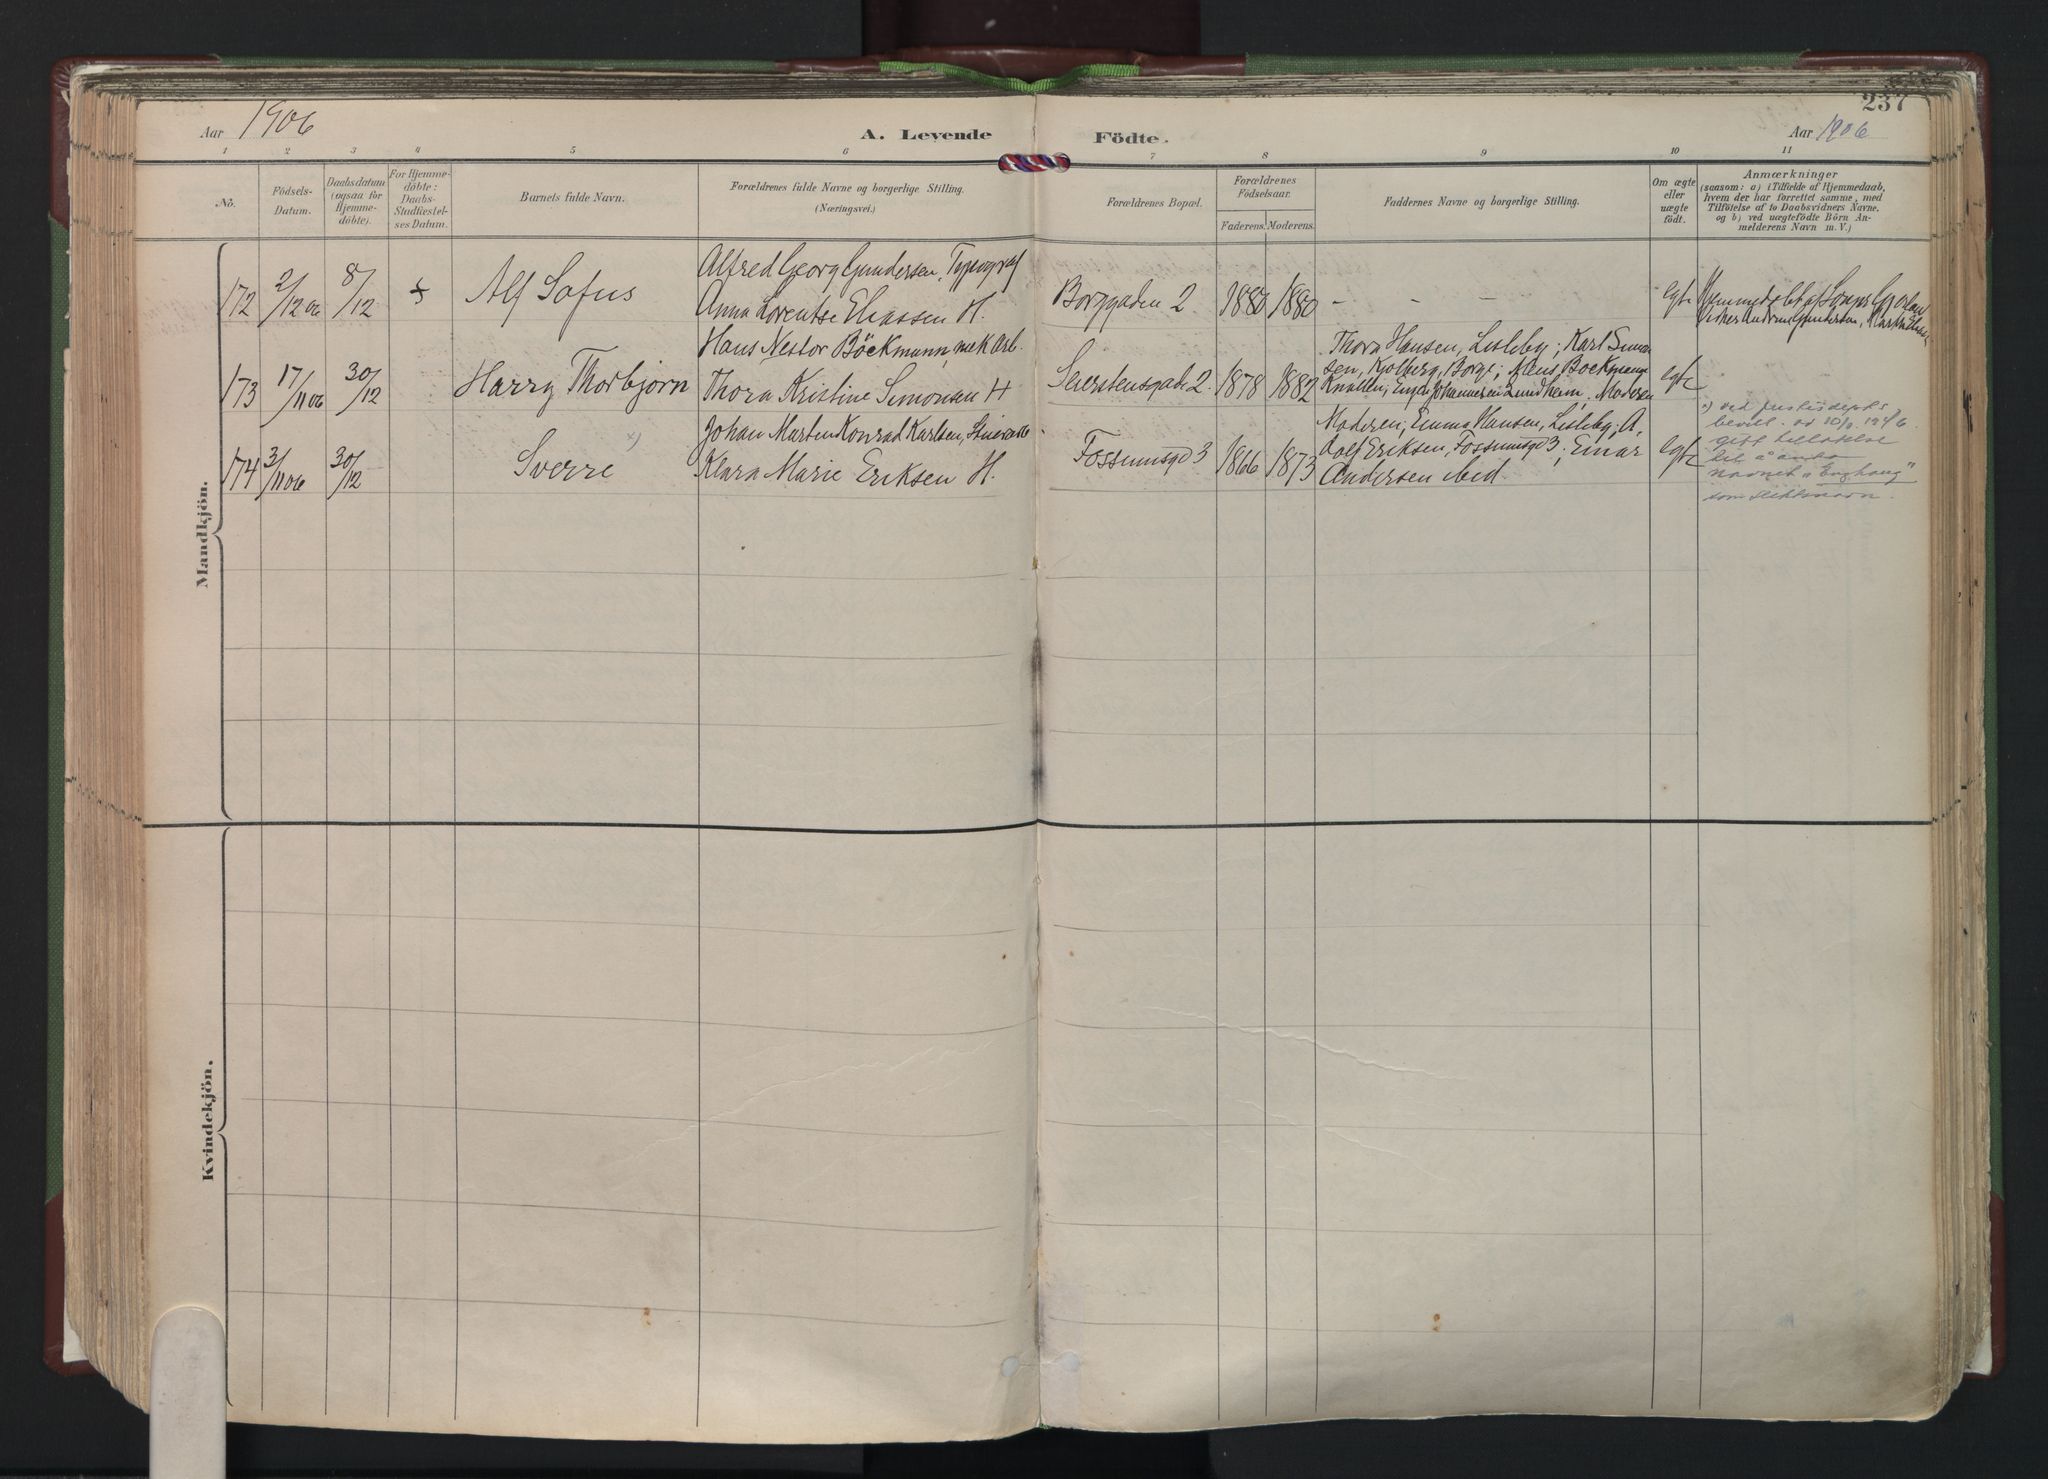 237
Aar 1906
A. Levende Födte.
Aar 1906
1 2 3 4 5 6 7 8 9 10 11
No.
Födsels-
Datum.
Daabsdatum
(ogsaa for
Hjemme-
döbte).
For Hjemme-
döbte:
Daabs-
Stadfæstel-
ses Datum.
Barnets fulde Navn.
Forældrenes fulde Navne og borgerlige Stilling.
(Næringsvei.)
Forældrenes Bopæl.
Forældrenes
Födselsaar.
Faderens. Moderens.
Faddernes Navne og borgerlige Stilling.
Om ægte
eller
uægte
födt.
Anmærkninger
(saasom: a) i Tilfælde af Hjemmedaab,
hvem der har forrettet samme, med
Tilföielse af to Daabsvidners Navne.
og b) ved uægtefödte Börn An-
melderens Navn m. V.)
Mandkjön.
172 2/12 06 8/12
Alf Sofus
Alfred Georg Gundersen, Typograf
Anna Lorentse Eliassen H.
Borggaden 2 1880 1880 - - - -
egte
Hjemmedøbt af
173 17/11 06 30/12
Harry Thorbjørn
Hans Nestor Böckmann, mek Arb.
Thora Kristine Simonsen H
Seierstensgade 2 1878 1882
Thora Hansen, Lisleby; Karl Simon
sen, Kjølberg, Borge; Hans Bøckmann
Moderen
egte
174 3/11 06 30/12
Sverre x)
Johan Marten Konrad Karlsen,
Klara Marie Eriksen H.
Fossumsgd 3 1866 1873
Moderen, Emma Hansen, Lisleby, A.
dolf Eriksen, Fossumsgd 3; Einar
Andersen ibid.
egte
x) ved justisdepts
bevill. av 1946
gitt tillatelse
til å anta
navnet „Enghaug"
som slektsnavn.
Kvindekjön.